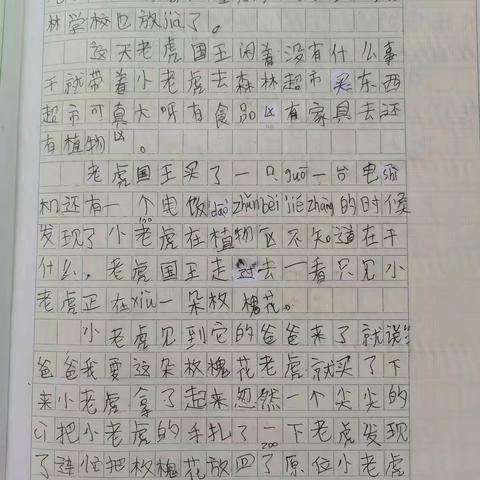 林学校也放jià了。
这天老虎国王闲着没有什么事
干就带着小老虎去森林超市买东西
超市可真大呀有食品区有家具去还
有植物区。
老虎国王买了一口guō一台电shì
机还有一个电饭dāo zhǔn bèi jié zhàng的时侯
100
发现了小老虎在植物区不知道在干
什么,老虎国王走过去一看只见小
老虎正在xiù一朵枚槐花。
小老虎见到它的爸爸来了就说:
爸爸我要这朵枚槐花老虎就买了下
来小老虎拿了起来忽然一个尖尖的
ci把小老虎的手扎了一下老虎发现
200
了连忙把枚槐花放回了原位小老虎